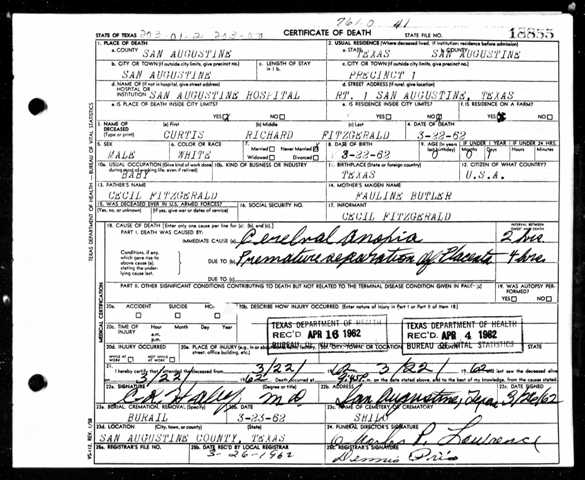 7610 41
STATE OF TEXAS 203 01-2 203-00 CERTIFICATE OF DEATH STATE FILE NO. 18855
1. PLACE OF DEATH 2. USUAL RESIDENCE (Where deceased lived. If institution: residence before admission)
a. COUNTY SAN AUGUSTINE a. STATE TEXAS b. COUNTY SAN AUGUSTINE
b. CITY OR TOWN (If outside city limits, give precinct no.) c. LENGTH OF STAY in 1 b. c. CITY OR TOWN (If outside city limits, give precinct no.)
SAN AUGUSTINE PRECINCT 1
d. NAME OF (If not in hospital, give street address) HOSPITAL OR INSTITUTION SAN AUGUSTINE HOSPITAL d. STREET ADDRESS (If rural, give location) RT. 1 SAN AUGUSTINE, TEXAS
e. IS PLACE OF DEATH INSIDE CITY LIMITS? YES NO e. IS RESIDENCE INSIDE CITY LIMITS? YES NO f. IS RESIDENCE ON A FARM? YES NO
3. NAME OF DECEASED (Type or print) (a) First (b) Middle (c) Last 4. DATE OF DEATH
CURTIS RICHARD FITZGERALD 3-22-62
5. SEX 6. COLOR OR RACE 7. Married Never Married Widowed Divorced 8. DATE OF BIRTH 9. AGE (In years last birthday) IF UNDER 1 YEAR Months Days IF UNDER 24 HRS. Hours Min.
MALE WHITE 3-22-62 0 0
10a. USUAL OCCUPATION (Give kind of work done during most of working life, even if retired) 10b. KIND OF BUSINESS OR INDUSTRY 11. BIRTHPLACE (State or foreign country) 12. CITIZEN OF WHAT COUNTRY?
BABY TEXAS U.S.A.
13. FATHER'S NAME 14. MOTHER'S MAIDEN NAME
CECIL FITZGERALD PAULINE BUTLER
15. WAS DECEASED EVER IN U.S. ARMED FORCES? (Yes, no, or unknown) (If yes, give war or dates of service) 16. SOCIAL SECURITY NO. 17. INFORMANT
CECIL FITZGERALD
18. CAUSE OF DEATH [Enter only one cause per line for (a), (b), and (c).] INTERVAL BETWEEN ONSET AND DEATH
PART I. DEATH WAS CAUSED BY:
IMMEDIATE CAUSE (a) Cerebral Anoxia 2 hrs.
Conditions, if any, which gave rise to above cause (a), stating the underlying cause last. DUE TO (b) Premature separation of Placenta 4 hrs.
DUE TO (c)
PART II. OTHER SIGNIFICANT CONDITIONS CONTRIBUTING TO DEATH BUT NOT RELATED TO THE TERMINAL DISEASE CONDITION GIVEN IN PART I (a) 19. WAS AUTOPSY PERFORMED? YES NO
20a. ACCIDENT SUICIDE HOMICIDE 20b. DESCRIBE HOW INJURY OCCURRED. (Enter nature of injury in Part I or Part II of Item 18)
20c. TIME OF INJURY Hour a.m. p.m. Month Day Year
TEXAS DEPARTMENT OF HEALTH REC'D APR 16 1962 BUREAU
TEXAS DEPARTMENT OF HEALTH REC'D APR 4 1962 BUREAU OF VITAL STATISTICS
20d. INJURY OCCURRED WHILE AT WORK NOT WHILE AT WORK 20e. PLACE OF INJURY 20f. CITY, TOWN, OR LOCATION COUNTY STATE
21. I hereby certify that I attended the deceased from 3/22 1962 3/22 1962 last saw the deceased alive
on 3/22 1962 Death occurred at 9:45P m., on the date stated above; and to the best of my knowledge, from the causes stated.
22a. SIGNATURE (Degree or title) 22b. ADDRESS 22c. DATE SIGNED
C.H. Haley M.D. San Augustine, Texas 3/26/62
23a. BURIAL, CREMATION, REMOVAL (Specify) 23b. DATE 23c. NAME OF CEMETERY OR CREMATORY
BURAIL 3-23-62 SHILO
23d. LOCATION (City, town, or county) (State) 24. FUNERAL DIRECTOR'S SIGNATURE
SAN AUGUSTINE COUNTY, TEXAS Charles P. Lawrence
25a. REGISTRAR'S FILE NO. 25b. DATE REC'D BY LOCAL REGISTRAR 25c. REGISTRAR'S SIGNATURE
3-26-1962 Dennis
TEXAS DEPARTMENT OF HEALTH - BUREAU OF VITAL STATISTICS
MEDICAL CERTIFICATION
VS-112 REV. 1/58